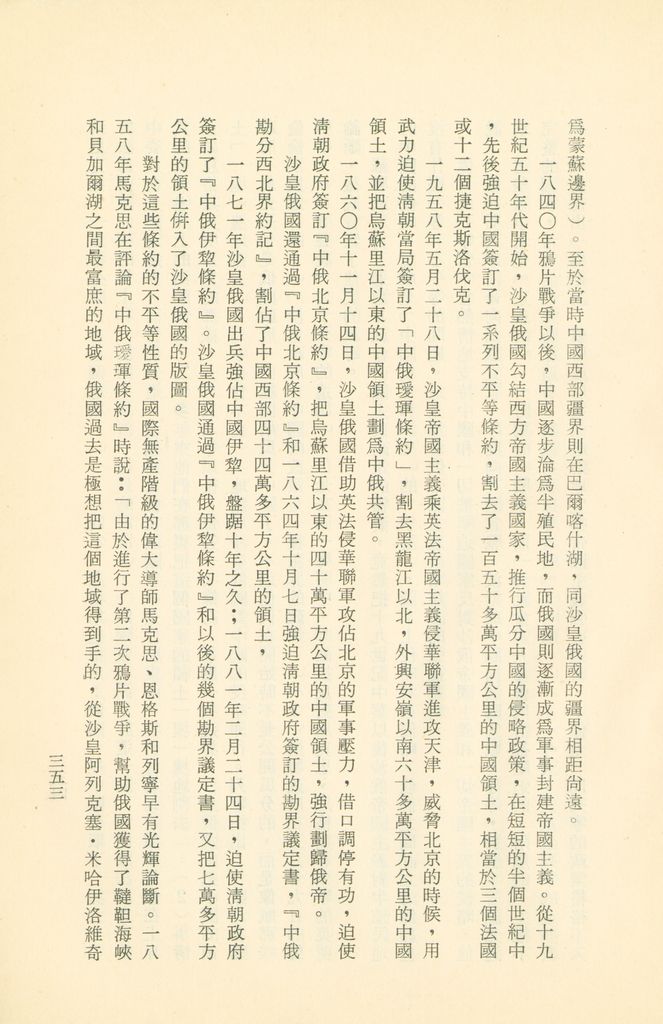 爲蒙蘇邊界）。至於當時中國西部疆界則在巴爾喀什湖，同沙皇俄國的疆界相距尚遠。
一八四〇年鴉片戰爭以後，中國逐步淪爲半殖民地，而俄國則逐漸成爲軍事封建帝國主義。從十九
世紀五十年代開始，沙皇俄國勾結西方帝國主義國家，推行瓜分中國的侵略政策，在短短的半個世紀中
，先後強迫中國簽訂了一系列不平等條約，割去了一百五十多萬平方公里的中國領土，相當於三個法國
或十二個捷克斯洛伐克。
一九五八年五月二十八日，沙皇帝國主義乘英法帝國主義侵華聯軍進攻天津，威脅北京的時候，用
武力迫使清朝當局簽訂了「中俄璦琿條約」，割去黑龍江以北，外興安嶺以南六十多萬平方公里的中國
領土，並把烏蘇里江以東的中國領土劃爲中俄共管。
一八六〇年十一月十四日，沙皇俄國借助英法侵華聯軍攻佔北京的軍事壓力，借口調停有功，迫使
清朝政府簽訂『中俄北京條約』，把烏蘇里江以東的四十萬平方公里的中國領土，強行劃歸俄帝。
沙皇俄國還通過『中俄北京條約』和一八六四年十月七日強迫清朝政府簽訂的勘界議定書，『中俄
勘分西北界約記』，割佔了中國西部四十四萬多平方公里的領土，
一八七一年沙皇俄國出兵強佔中國伊犂，盤踞十年之久；一八八一年二月二十四日，迫使清朝政府
簽訂了『中俄伊犂條約』。沙皇俄國通過『中俄伊犂條約』和以後的幾個勘界議定書，又把七萬多平方
公里的領土併入了沙皇俄國的版圖。
對於這些條約的不平等性質，國際無產階級的偉大導師馬克思、恩格斯和列寧早有光輝論斷。一八
五八年馬克思在評論『中俄璦琿條約』時說：「由於進行了第二次鴉片戰爭，幫助俄國獲得了韃靼海峽
和貝加爾湖之間最富庶的地域，俄國過去是極想把這個地域得到手的，從沙皇阿列克塞·米哈伊洛維奇
三五三